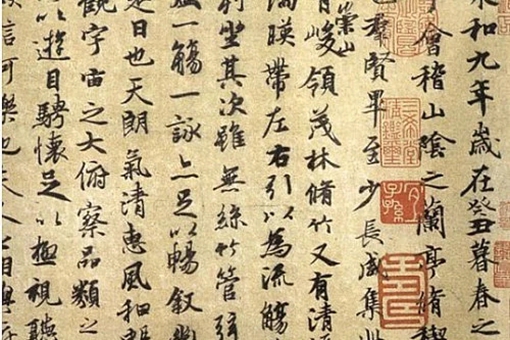 永和九年歲在癸丑暮春之
會稽山陰之蘭亭脩稧
也群賢畢至少長咸集此
有崇山峻領茂林脩竹又有清流
湍暎帶左右引以為流觴
列坐其次雖無絲竹管弦
盛一觴一詠亦足以暢敘幽
是日也天朗氣清惠風和暢
觀宇宙之大俯察品類之
以遊目騁懷足以極視聽
信可樂也夫人之相與